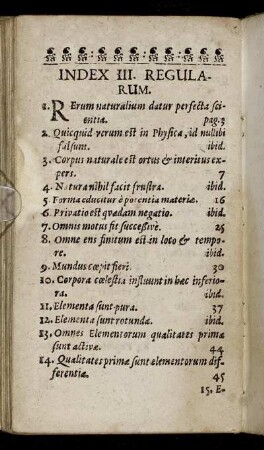 INDEX III. REGULA-
RUM.
1. RErum naturalium datur perfecta sci-
entia. pag. 3
2. Quicquid verum est in Physica, id nullibi
falsum. ibid.
3. Corpus naturale est ortus & interitus ex-
pers. 7
4. Natura nihil facit frustra. ibid.
5. Forma educitur è potentia materiæ. 16
6. Privatio est quædam negatio. ibid.
7. Omnis motus fit successivè. 25
8. Omne ens finitum est in loco & tempo-
re. ibid.
9. Mundus cœpit fieri. 30
10. Corpora cœlestia influunt in hæc inferio-
ra. ibid.
11. Elementa sunt pura. 37
12. Elementa sunt rotunda. ibid.
13. Omnes Elementorum qualitates primæ
sunt activæ. 44
14. Qualitates primæ sunt elementorum dif-
ferentiæ. 45
15. E-